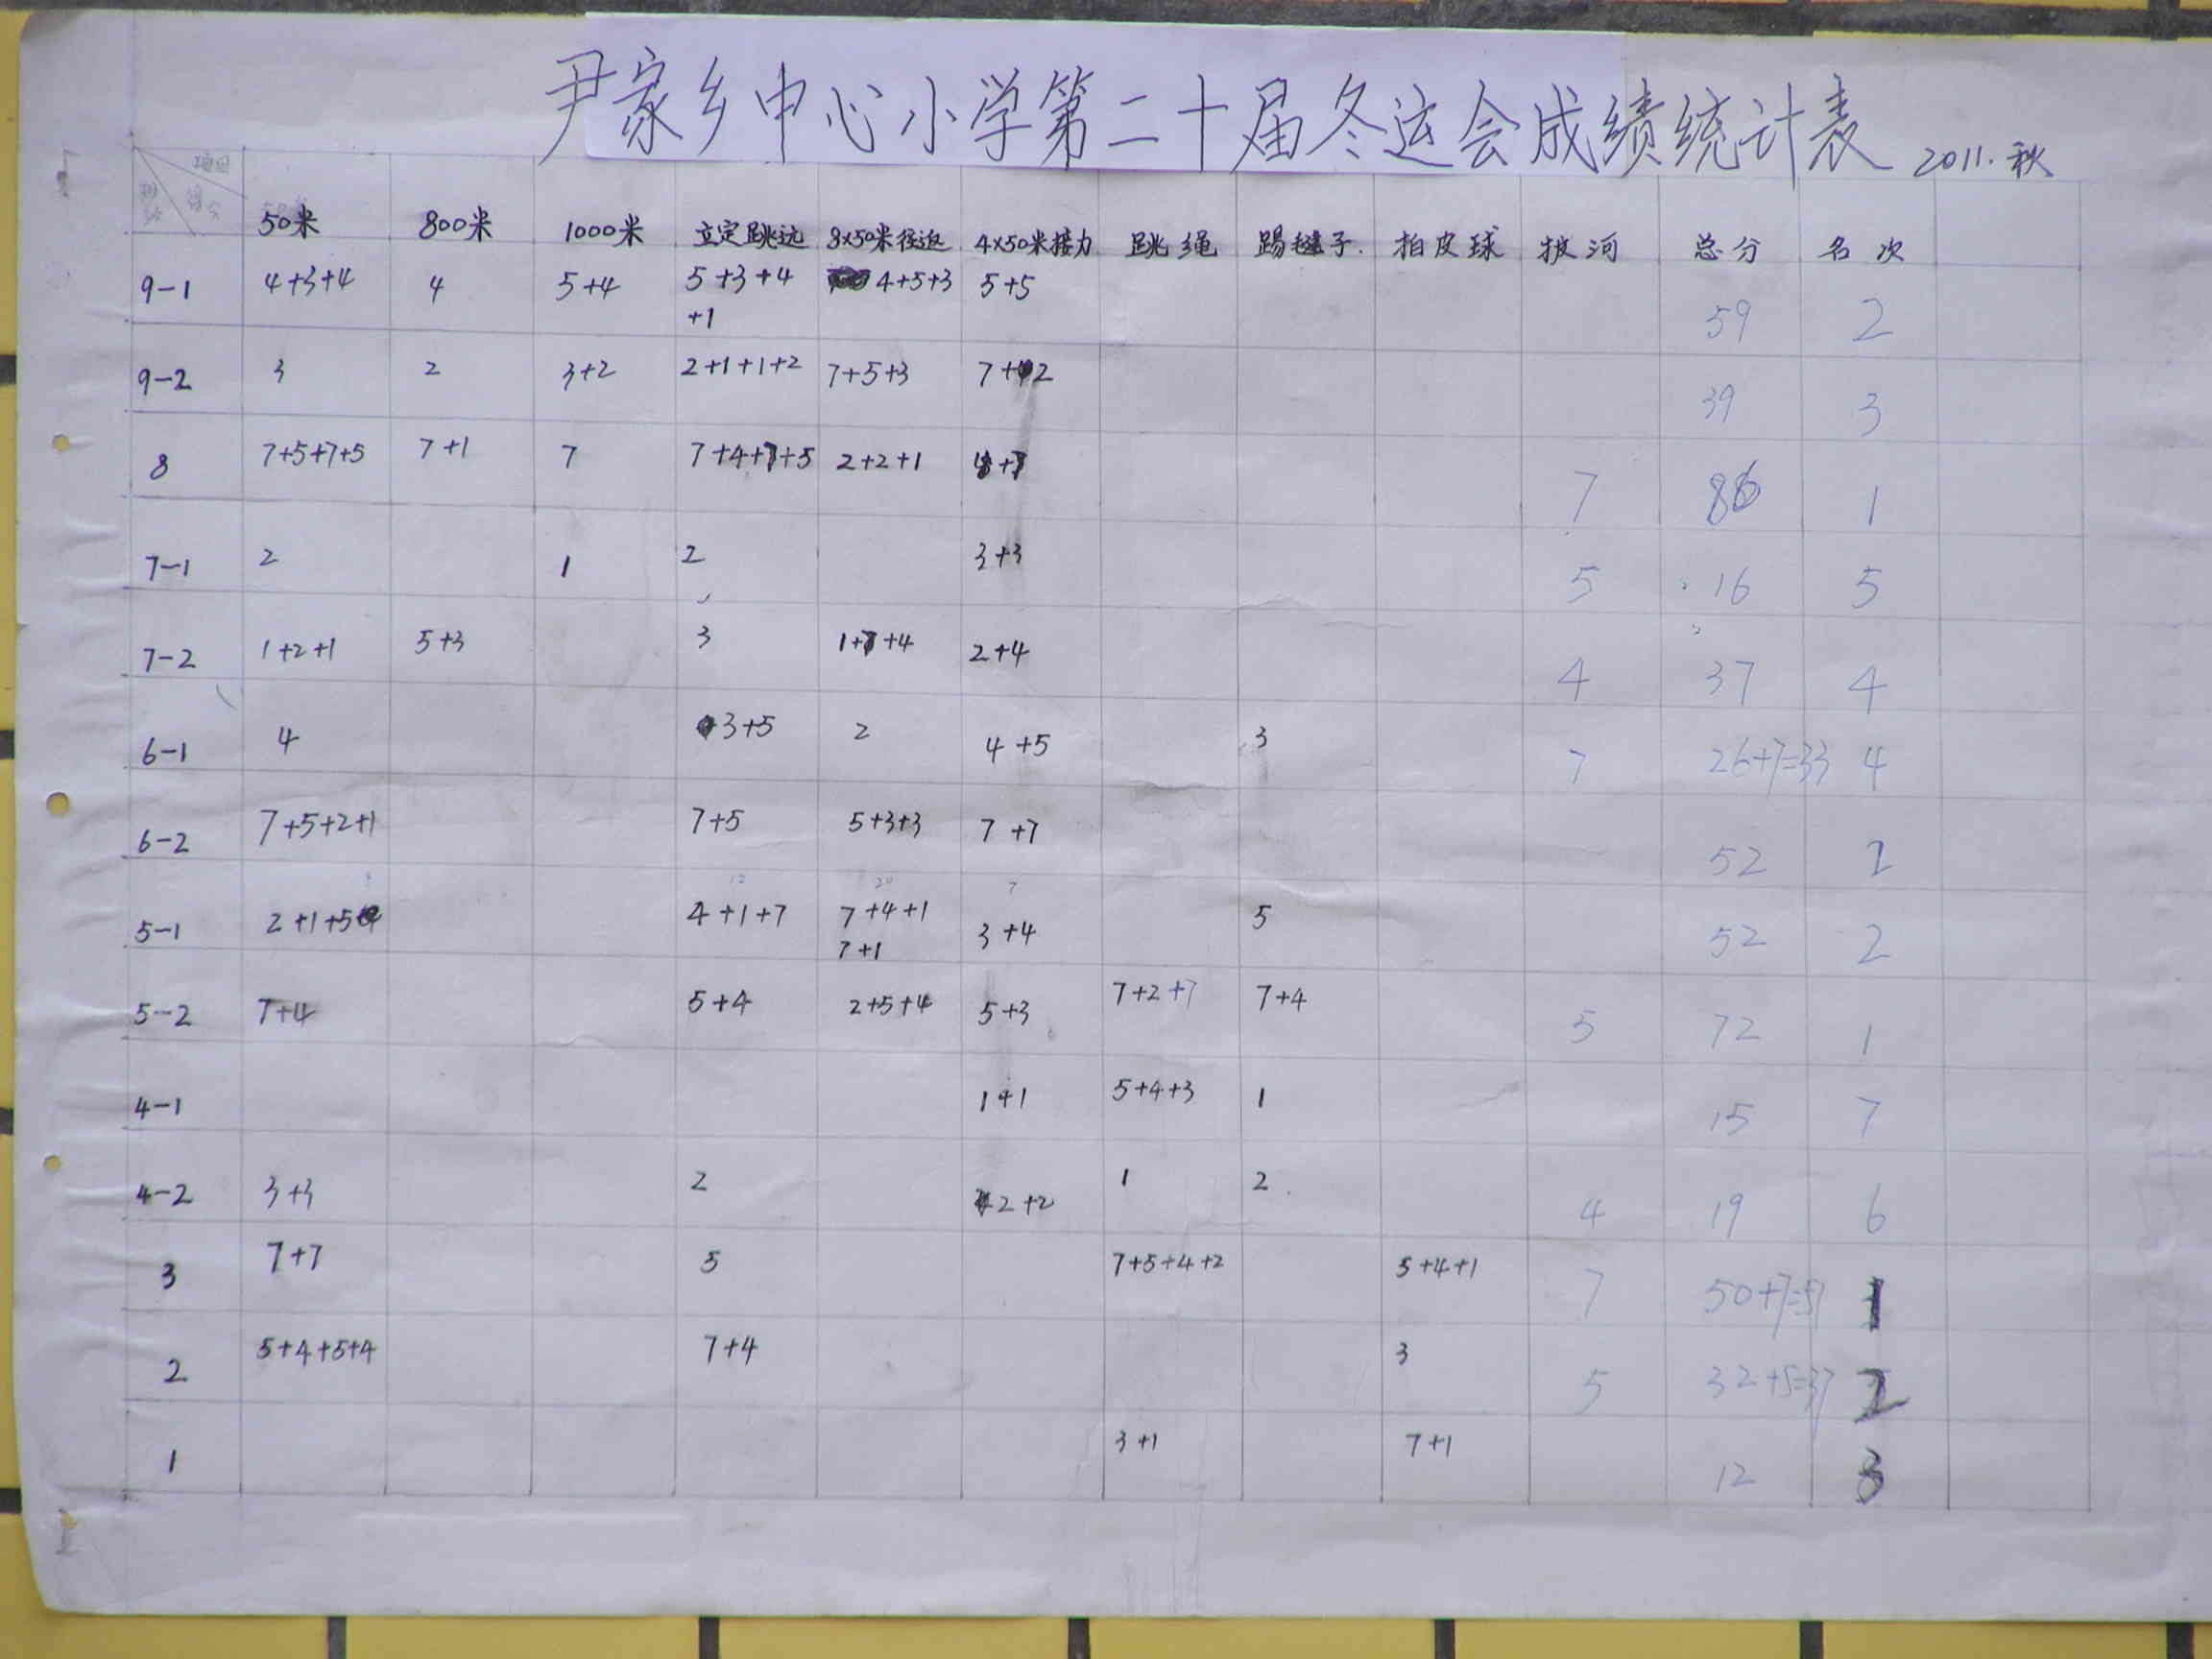 尹家乡中心小学第二十届冬运会成绩统计表 2011.秋
项目
得分
50米 800米 1000米 立定跳远 8x50米往返 4x50米接力 跳绳 踢毽子 拍皮球 拔河 总分 名次
9-1 4+3+4 4 5+4 5+3+4 4+5+3 5+5
+1 59 2
9-2 3 2 3+2 2+1+1+2 7+5+3 7+2 39 3
8 7+5+7+5 7+1 7 7+4+7+5 2+2+1 7 86 1
7-1 2 1 2 3+3 5 16 5
7-2 1+2+1 5+3 3 1+7+4 2+4 4 37 4
6-1 4 3+5 2 4+5 3 7 26+7=33 4
6-2 7+5+2+1 7+5 5+3+3 7+7 52 2
12 20 7
5-1 2+1+5 4+1+7 7+4+1 3+4 5 52 2
7+1
5-2 7+4 5+4 2+5+4 5+3 7+2+7 7+4 5 72 1
4-1 1+1 5+4+3 1 15 7
4-2 3+3 2 2+2 1 2 4 19 6
3 7+7 5 7+5+4+2 5+4+1 7 50+7=57 1
2 5+4+5+4 7+4 3 5 32+5=37 2
1 3+1 7+1 12 3